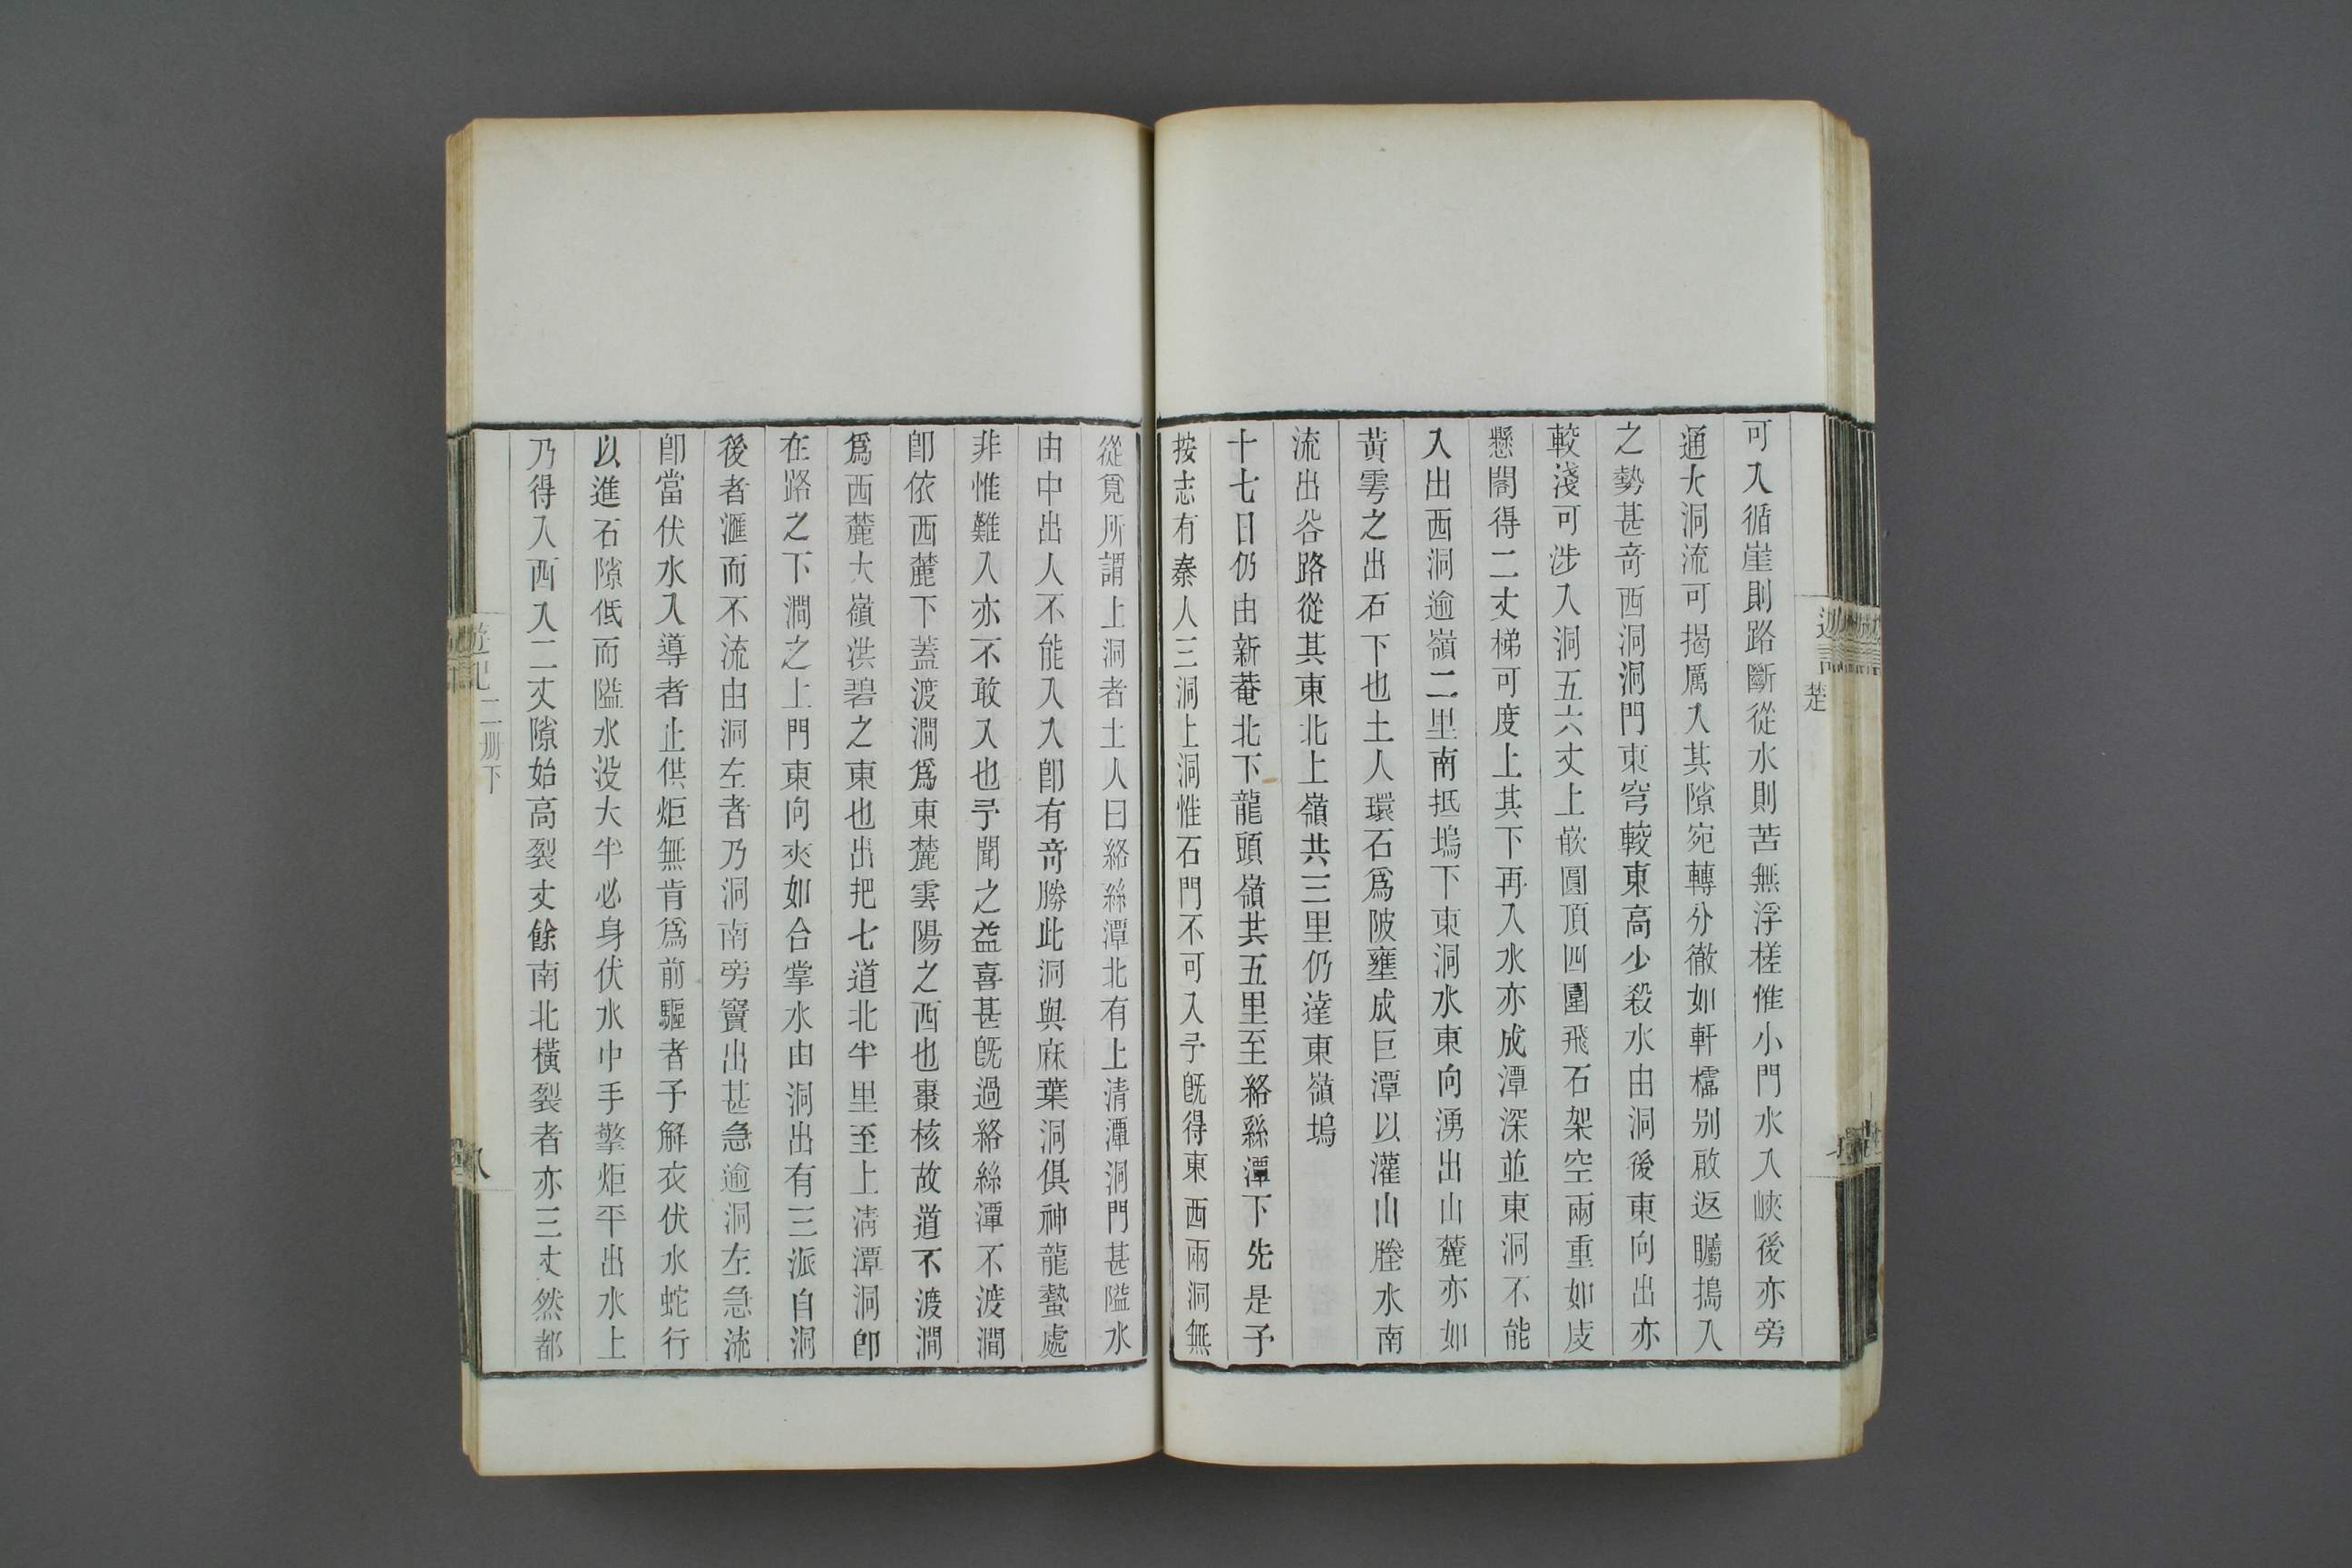 可入循崖則路斷從水則苦無浮槎惟小門水入峽後亦旁
通大洞流可揭厲入其隙宛轉分徹如軒櫺別啟返矚搗入
之勢甚奇西洞洞門東穹較東高少殺水由洞後東向出亦
較淺可涉入洞五六丈上嵌圓頂四圍飛石架空兩重如庋
懸閣得二丈梯可度上其下再入水亦成潭深並東洞不能
入出西洞逾嶺二里南抵塢下東洞水東向湧出山麓亦如
黃雩之出石下也土人環石爲陂壅成巨潭以灌山塍水南
流出谷路從其東北上嶺共三里仍達東嶺塢
十七日仍由新菴北下龍頭嶺共五里至絡絲潭下先是予
按志有秦人三洞上洞惟石門不可入予旣得東西兩洞無
從覓所謂上洞者土人曰絡絲潭北有上清潭洞門甚隘水
由中出人不能入入卽有奇勝此洞與麻葉洞俱神龍蟄處
非惟難入亦不敢入也予聞之益喜甚旣過絡絲潭不渡澗
卽依西麓下蓋渡澗爲東麓雲陽之西也棗核故道不渡澗
爲西麓大嶺洪碧之東也出把七道北半里至上淸潭洞卽
在路之下澗之上門東向夾如合掌水由洞出有三派自洞
後者滙而不流由洞左者乃洞南旁竇出甚急逾洞左急流
卽當伏水入導者止供炬無肯爲前驅者予解衣伏水蛇行
以進石隙低而隘水沒大半必身伏水中手擎炬平出水上
乃得入西入二丈隙始高裂丈餘南北橫裂者亦三丈然都
遊記二册下
八